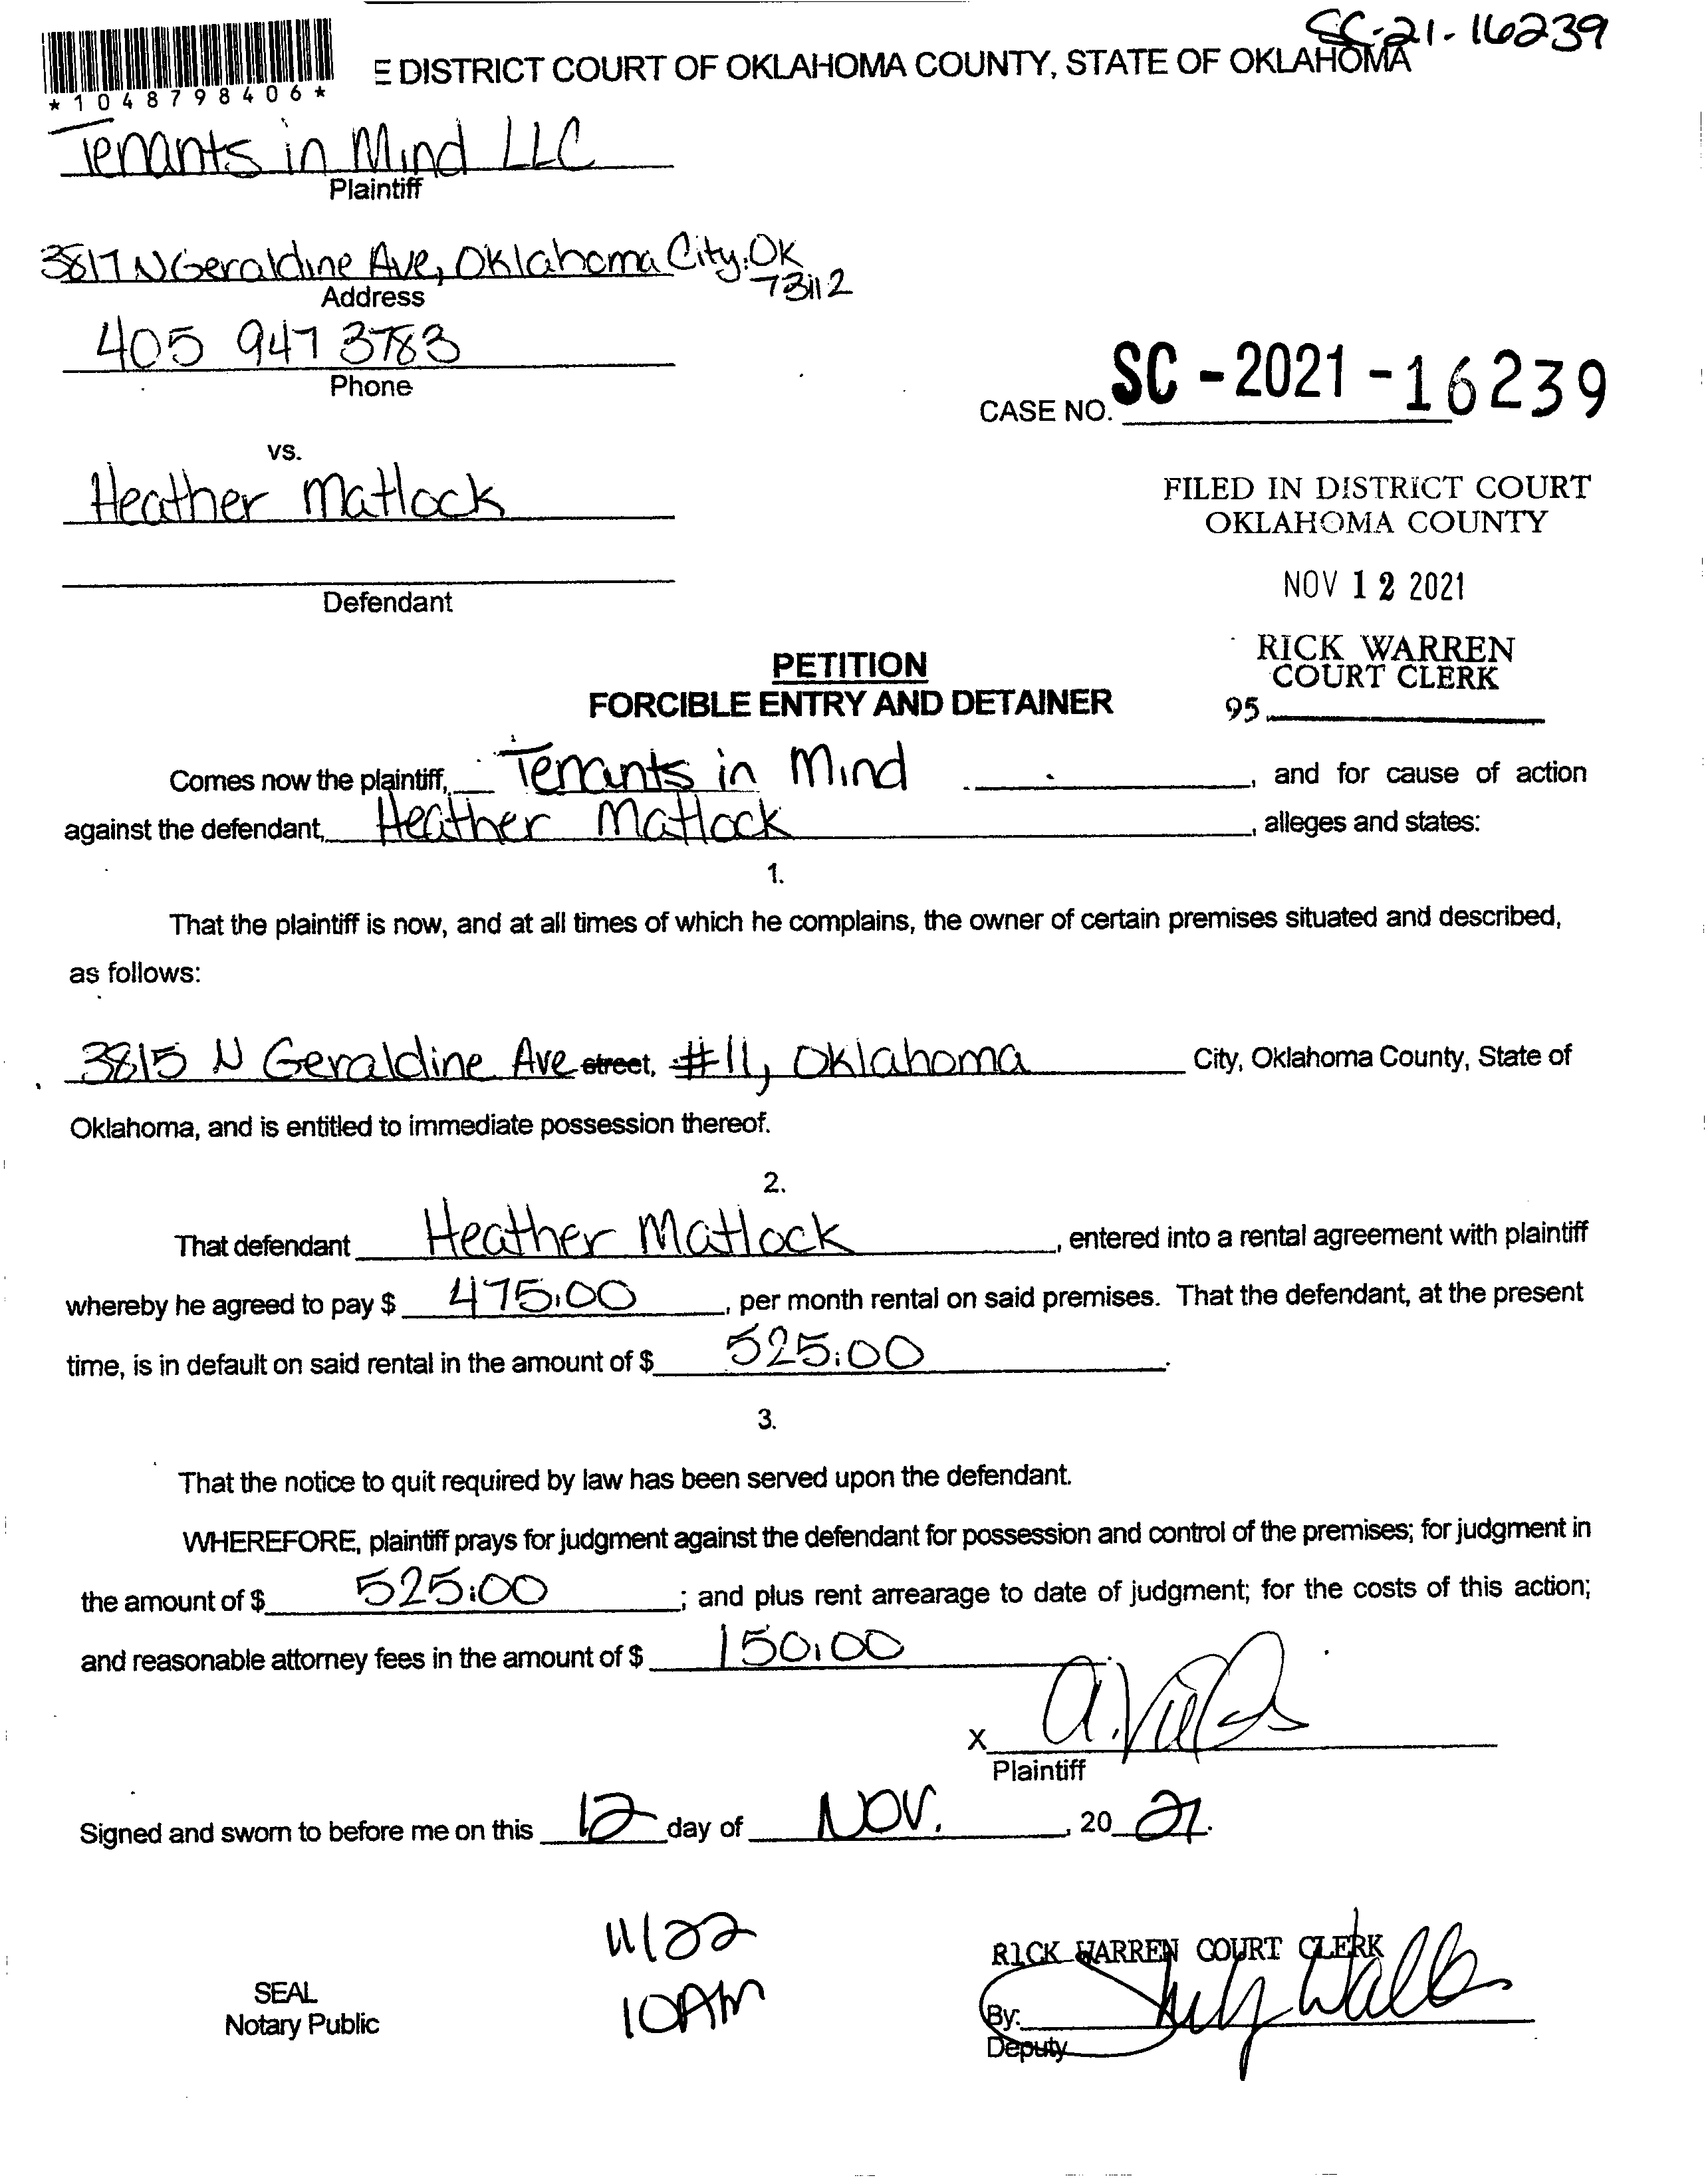 SC-21-16239
*1048798406*
E DISTRICT COURT OF OKLAHOMA COUNTY, STATE OF OKLAHOMA
Tenants in Mind LLC
Plaintiff
3817 N Geraldine Ave, Oklahoma City, OK
73112
Address
405 947 3783
Phone
CASE NO. SC-2021-16239
vs.
Heather Matlock
FILED IN DISTRICT COURT
OKLAHOMA COUNTY
Defendant
NOV 12 2021
RICK WARREN
COURT CLERK
95
PETITION
FORCIBLE ENTRY AND DETAINER
Comes now the plaintiff, Tenants in Mind, and for cause of action
against the defendant, Heather Matlock, alleges and states:
1.
That the plaintiff is now, and at all times of which he complains, the owner of certain premises situated and described,
as follows:
3815 N Geraldine Ave street, #11, Oklahoma City, Oklahoma County, State of
Oklahoma, and is entitled to immediate possession thereof.
2.
That defendant Heather Matlock, entered into a rental agreement with plaintiff
whereby he agreed to pay $ 475.00, per month rental on said premises. That the defendant, at the present
time, is in default on said rental in the amount of $ 525.00.
3.
That the notice to quit required by law has been served upon the defendant.
WHEREFORE, plaintiff prays for judgment against the defendant for possession and control of the premises; for judgment in
the amount of $ 525.00; and plus rent arrearage to date of judgment; for the costs of this action;
and reasonable attorney fees in the amount of $ 150.00
X
Plaintiff
Signed and sworn to before me on this 12 day of Nov., 20 21.
11/22
10AM
SEAL
Notary Public
RICK WARREN COURT CLERK
By:
Deputy